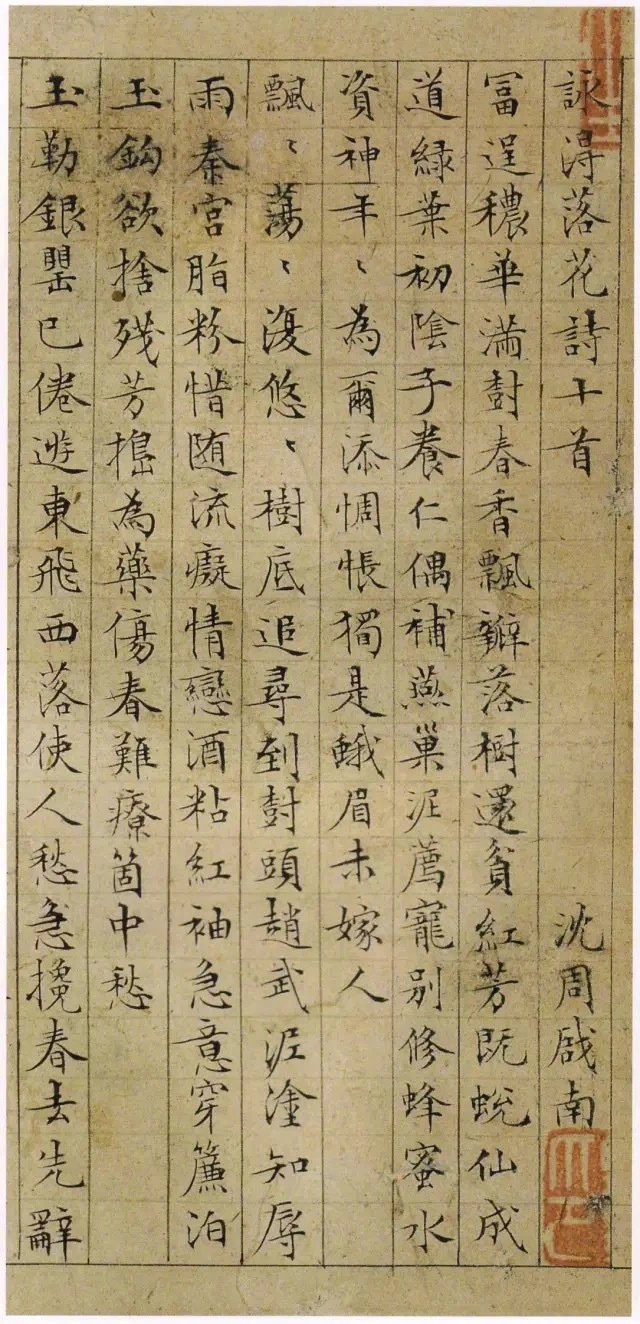 詠得落花詩十首 沈周啟南
富逞穠華滿樹春香飄瓣落樹還貧紅芳既蛻仙成
道綠葉初陰子養仁偶補燕巢泥薦寵別修蜂蜜水
資神年〻為爾添惆悵獨是蛾眉未嫁人
飄〻蕩〻復悠〻樹底追尋到樹頭趙武泥塗知辱
雨秦宮脂粉惜随流癡情戀酒粘紅袖急意穿簾泊
玉鈎欲捨殘芳搗為藥傷春難療箇中愁
玉勒銀罌已倦遊東飛西落使人愁急攙春去先辭